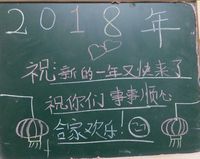 2018年
祝:新的一年又快来了
祝你们事事顺心
合家欢乐!